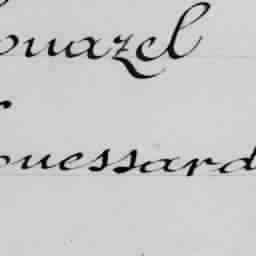 ouazel
ouessard